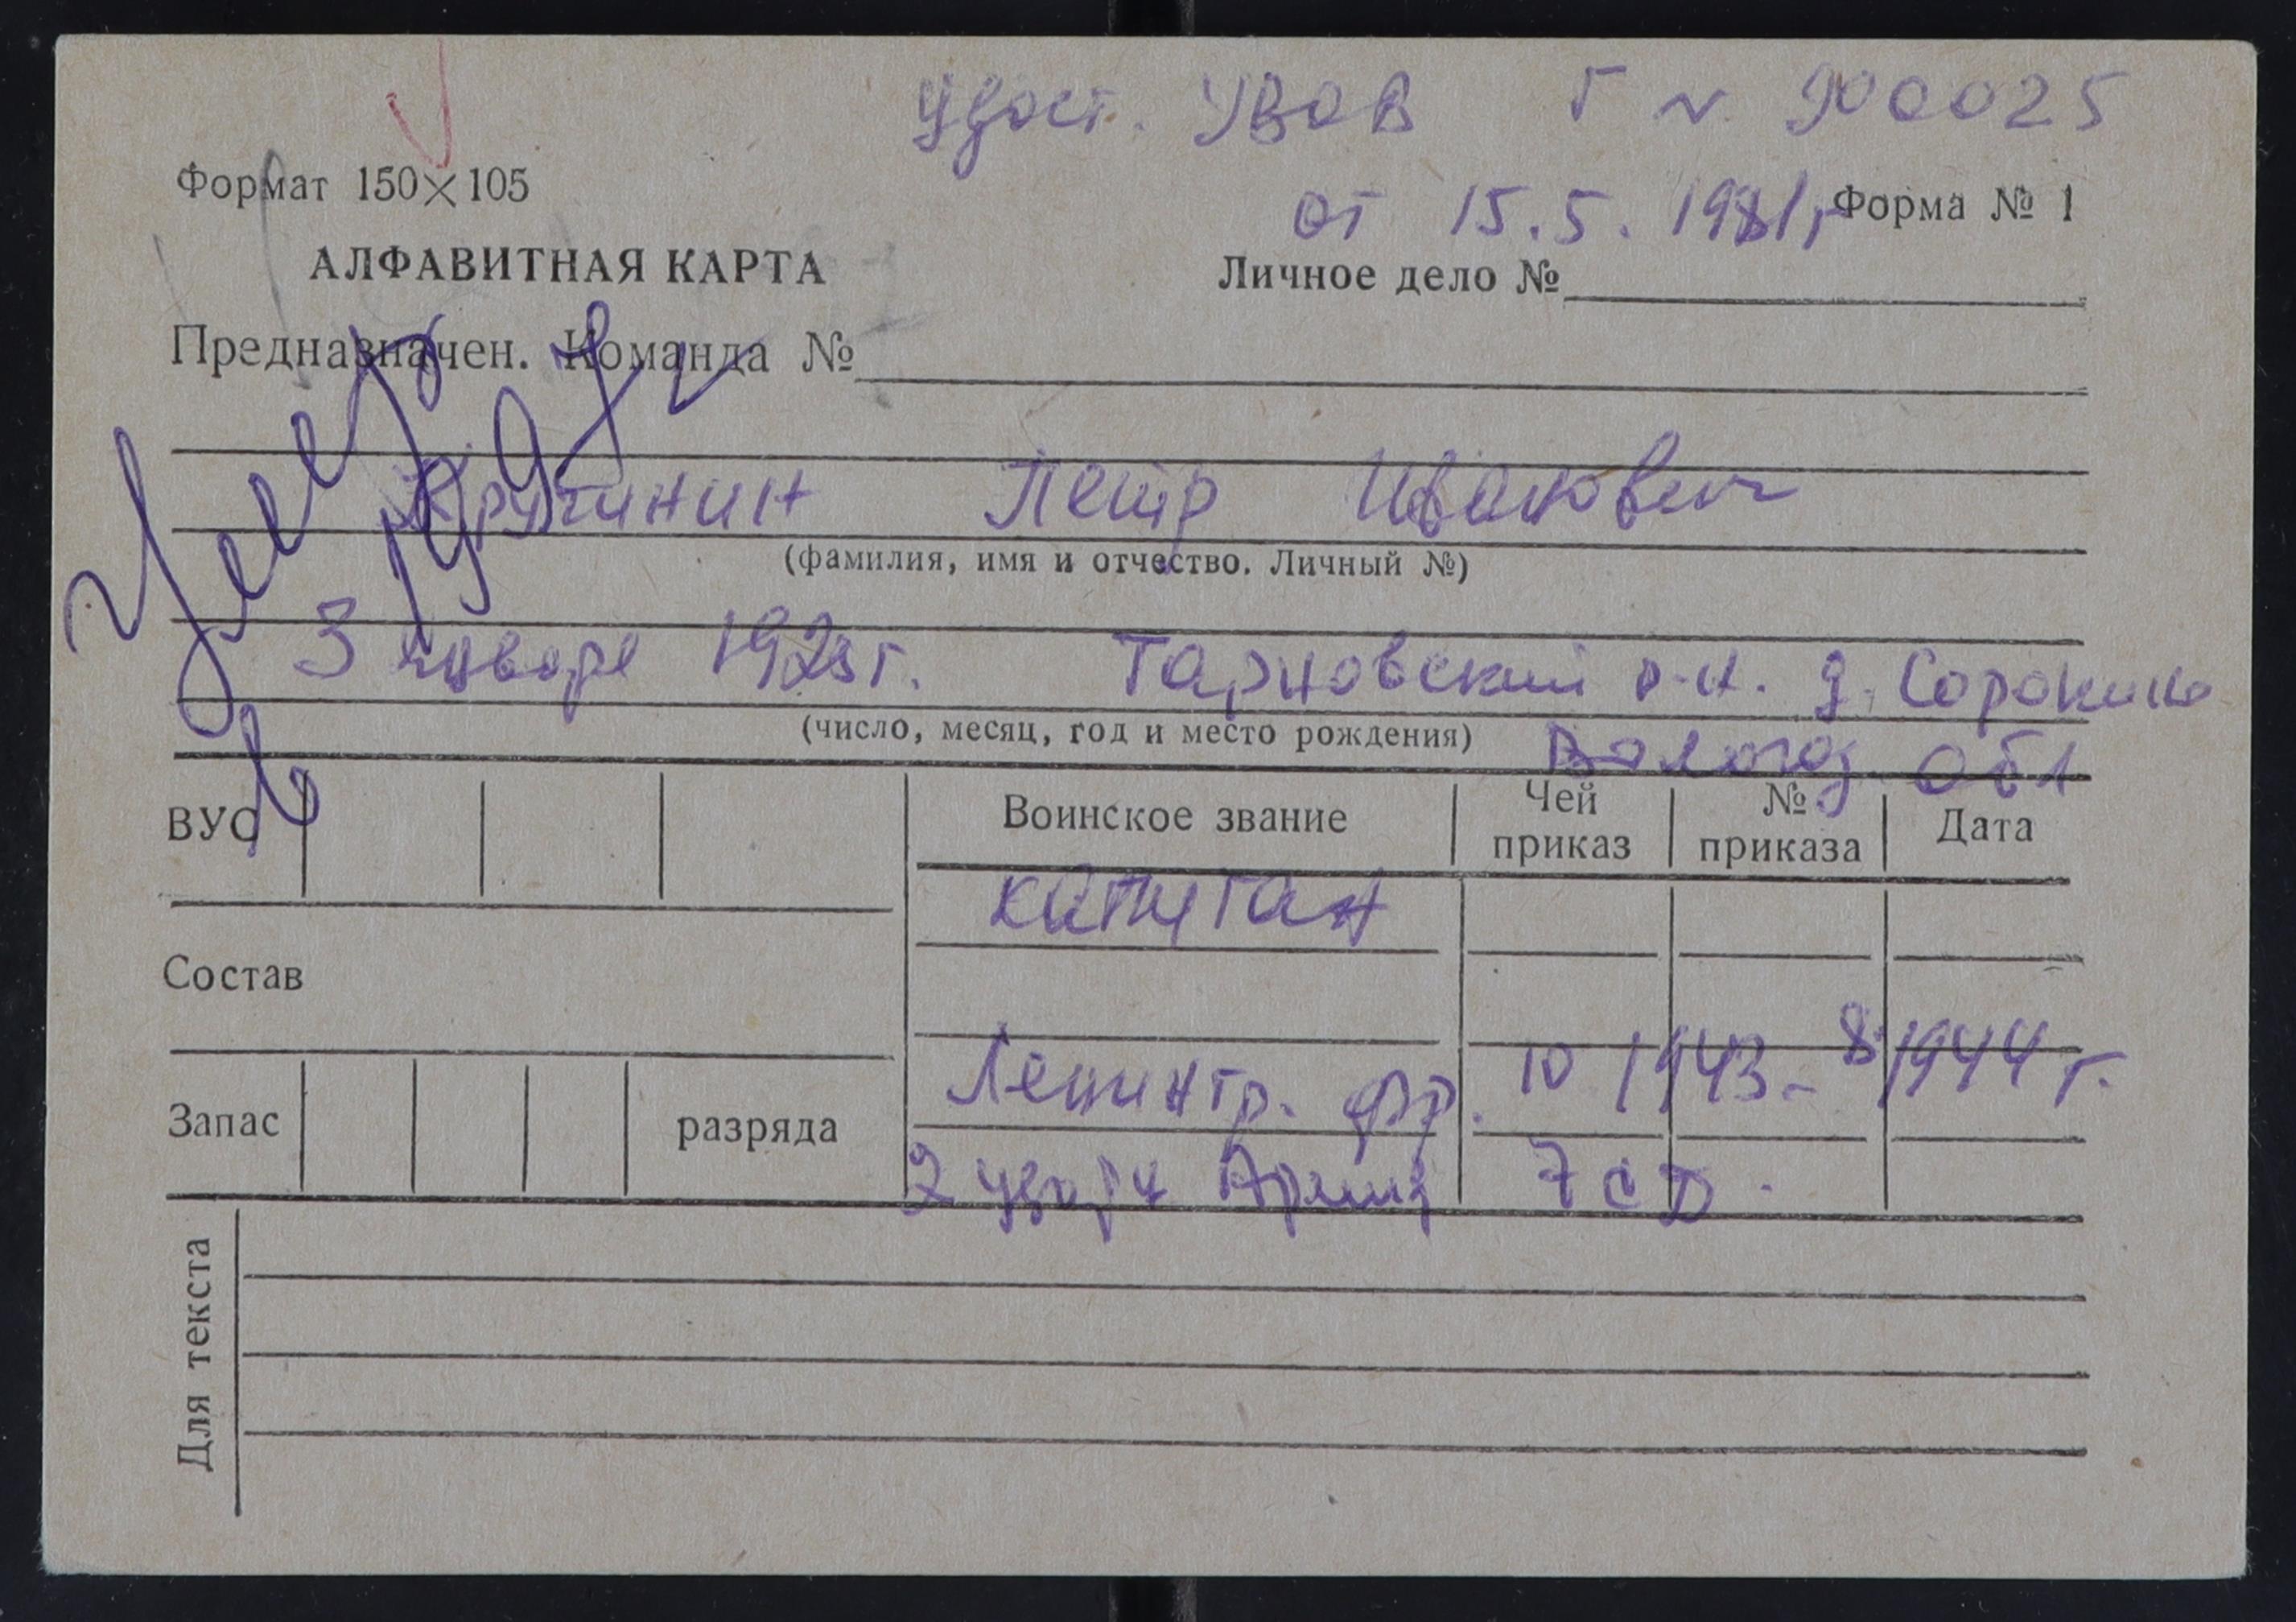 Удост. УВОВ Г № 900025
Формат 150×105
от 15.5.1981г Форма № 1
АЛФАВИТНАЯ КАРТА
Личное дело №
Предназначен. Команда №
Кручинин Петр Иванович
(фамилия, имя и отчество. Личный №)
3 января г. Тарновский р-н. д.
(число, месяц, год и место рождения)
Волог. обл
ВУС
Воинское звание
Чей приказ
№ приказа
Дата
капитан
Состав
Ленингр. фр. 10 1943 - 8 1944 г.
Запас
разряда
2 ударн Армия 7 с д.
Для текста